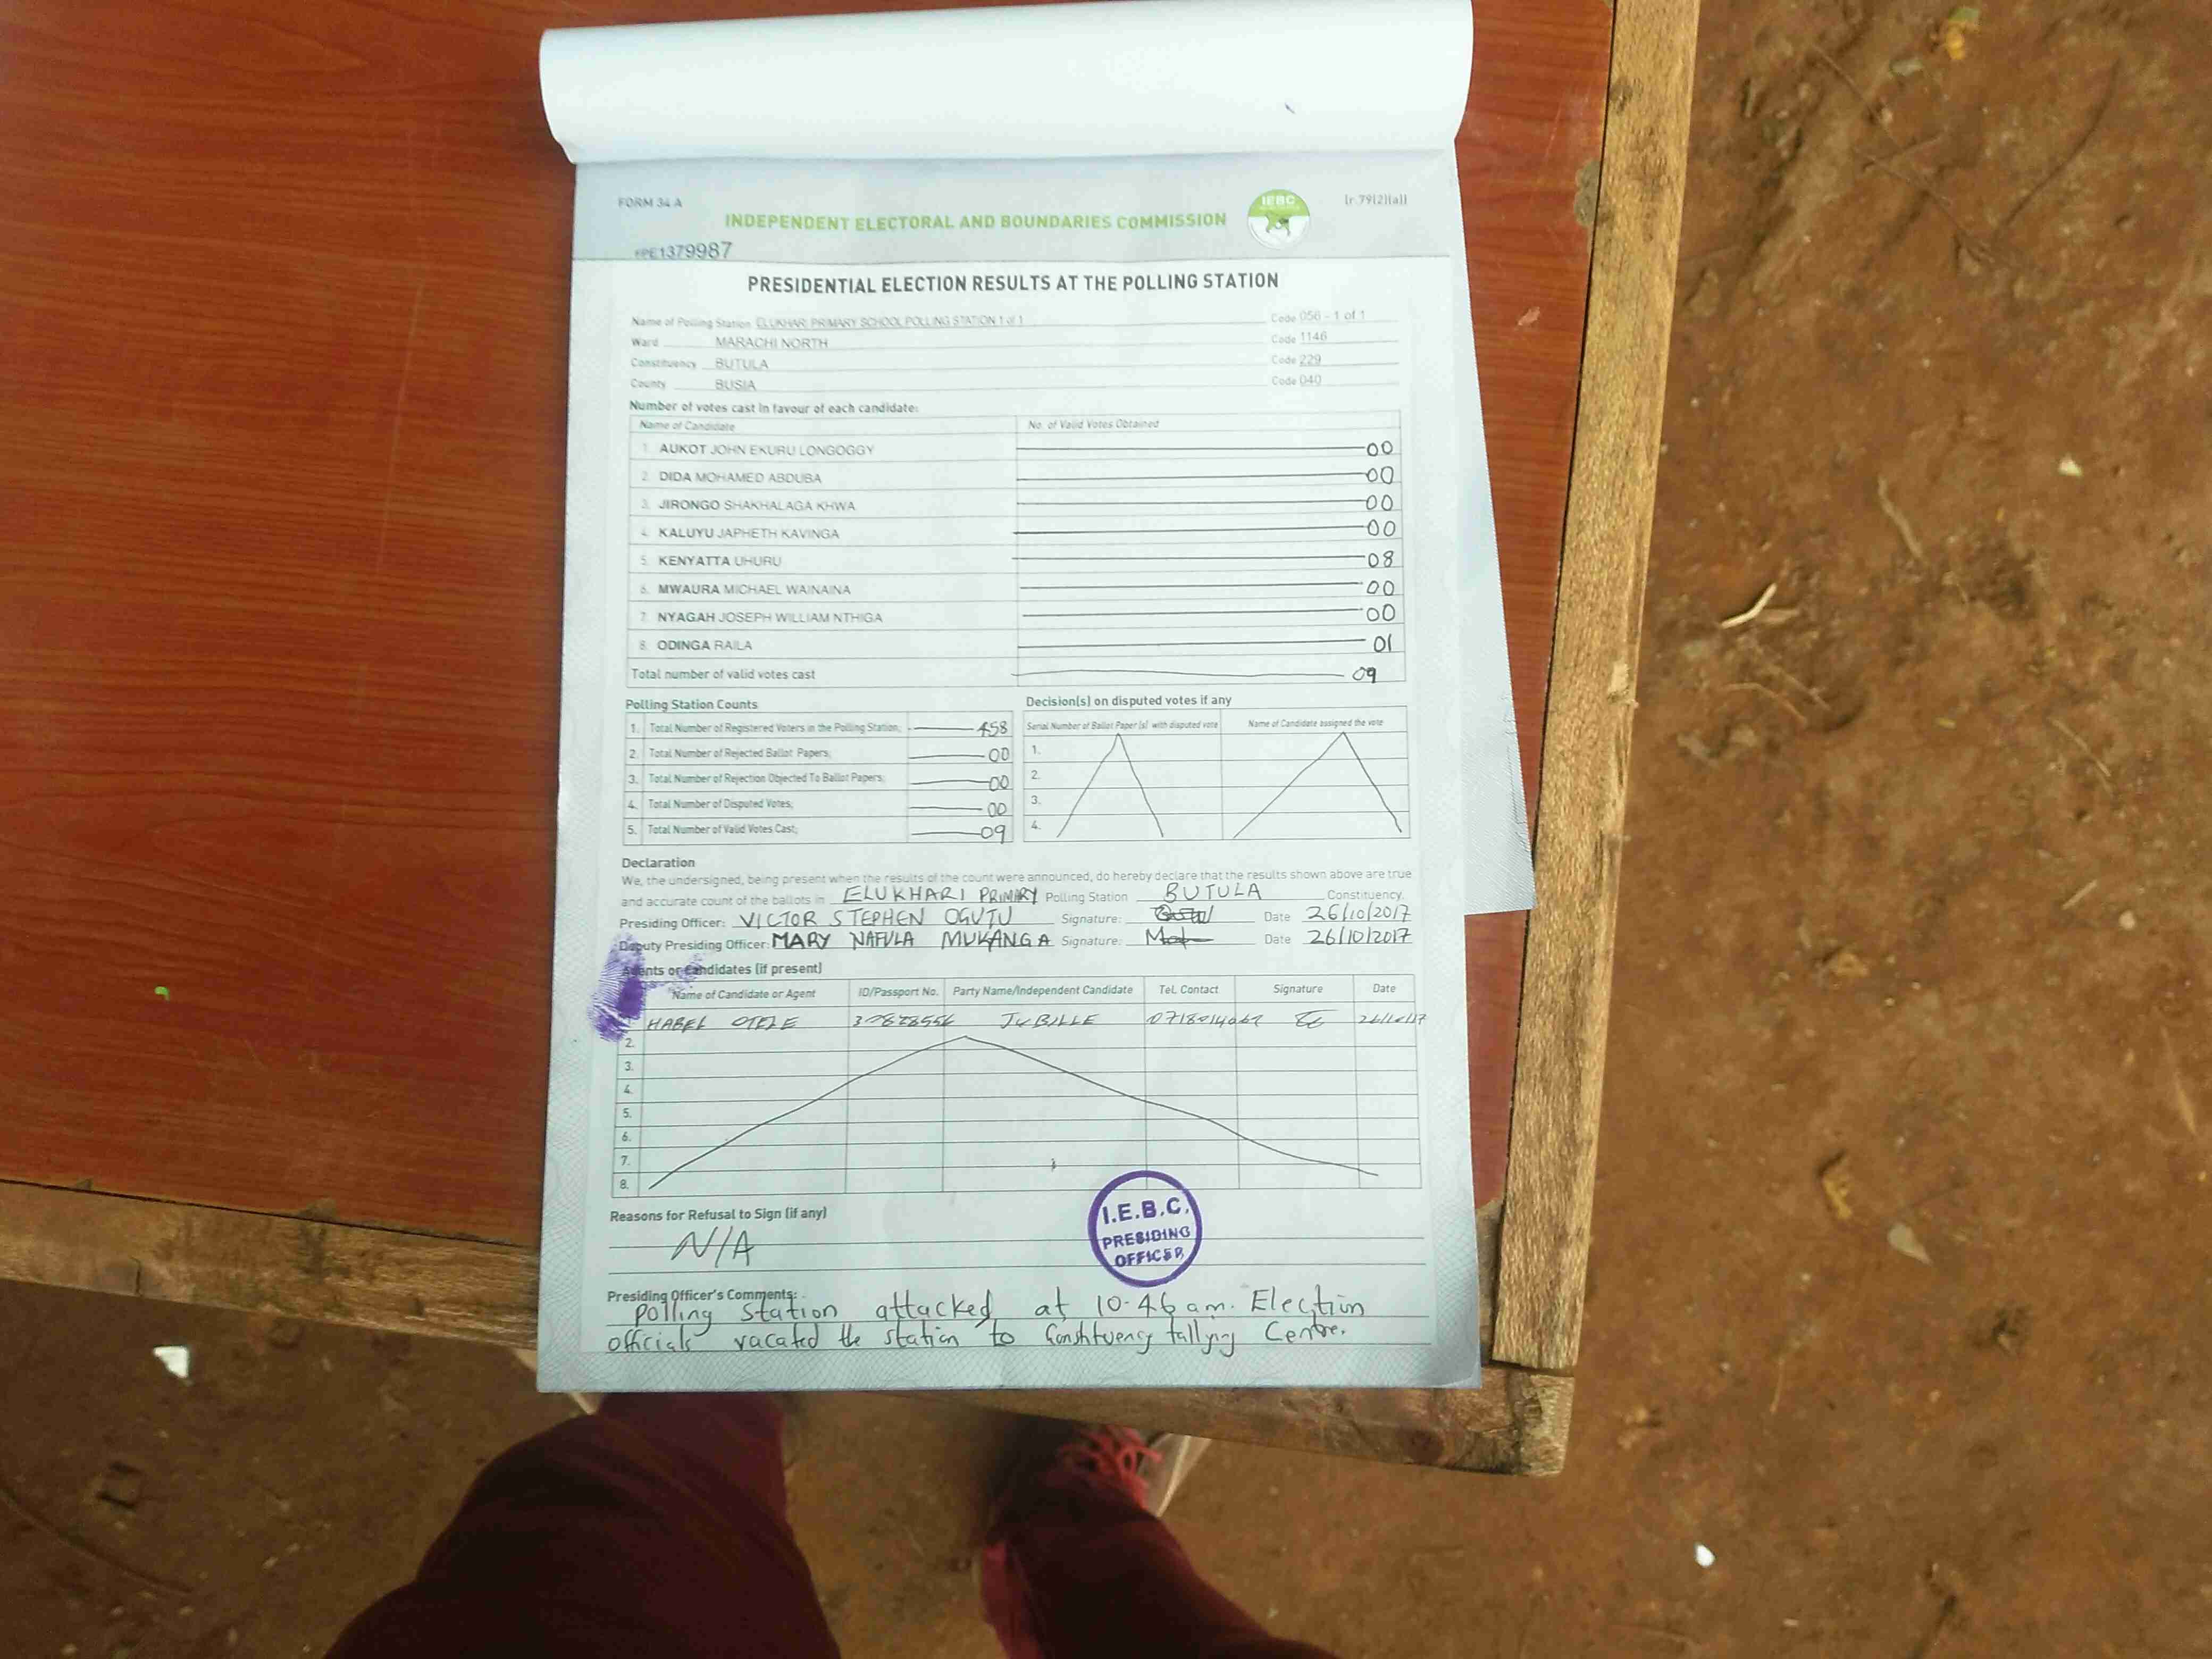 FORM 34 A
IEBC
[r.79(2)(a)]
INDEPENDENT ELECTORAL AND BOUNDARIES COMMISSION
1379987
PRESIDENTIAL ELECTION RESULTS AT THE POLLING STATION
Name of Polling Station ELUKHARI PRIMARY SCHOOL POLLING STATION 1 of 1 Code 056 - 1 of 1
Ward MARACHI NORTH Code 1146
Constituency BUTULA Code 229
County BUSIA Code 040
Number of votes cast in favour of each candidate:
Name of Candidate No. of Valid Votes Obtained
1. AUKOT JOHN EKURU LONGOGGY 00
2. DIDA MOHAMED ABDUBA 00
3. JIRONGO SHAKHALAGA KHWA 00
4. KALUYU JAPHETH KAVINGA 00
5. KENYATTA UHURU 08
6. MWAURA MICHAEL WAINAINA 00
7. NYAGAH JOSEPH WILLIAM NTHIGA 00
8. ODINGA RAILA 01
Total number of valid votes cast 09
Polling Station Counts
1. Total Number of Registered Voters in the Polling Station; 458
2. Total Number of Rejected Ballot Papers; 00
3. Total Number of Rejection Objected To Ballot Papers; 00
4. Total Number of Disputed Votes; 00
5. Total Number of Valid Votes Cast; 09
Decision(s) on disputed votes if any
Serial Number of Ballot Paper (s) with disputed vote Name of Candidate assigned the vote
1.
2.
3.
4.
Declaration
We, the undersigned, being present when the results of the count were announced, do hereby declare that the results shown above are true
and accurate count of the ballots in ELUKHARI PRIMARY Polling Station BUTULA Constituency.
Presiding Officer: VICTOR STEPHEN OGUTU Signature: Date 26/10/2017
Deputy Presiding Officer: MARY NAFULA MUKANGA Signature: Date 26/10/2017
Agents or Candidates (if present)
Name of Candidate or Agent ID/Passport No. Party Name/Independent Candidate Tel. Contact Signature Date
HABEL OTELE JUBILLE 26/10/17
2.
3.
4.
5.
6.
7.
8.
Reasons for Refusal to Sign (if any)
N/A
I.E.B.C.
PRESIDING
OFFICER
Presiding Officer's Comments:
Polling Station attacked at 10.46 am. Election
officials vacated the station to Constituency tallying Centre.